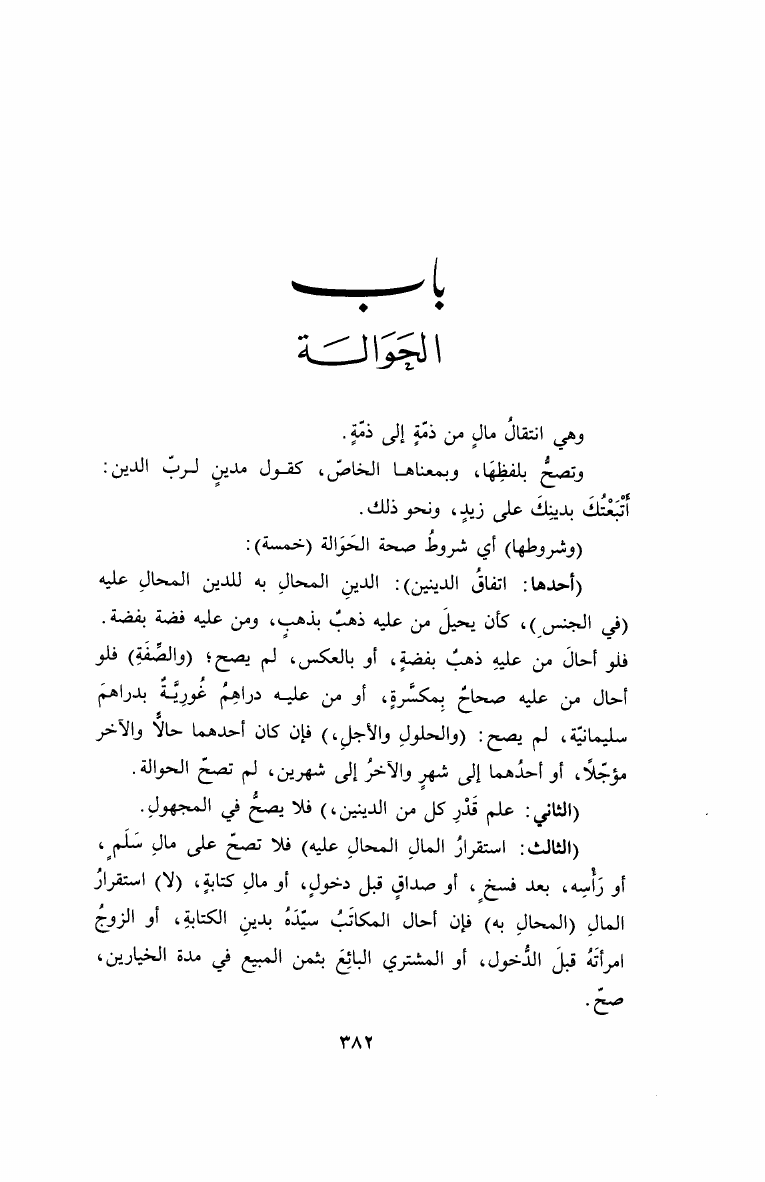 باب
الحَوَالَة
وهي انتقالُ مالٍ من ذمّةٍ إلى ذمّةٍ.
وتصحُّ بلفظِهَا، وبمعناها الخاصّ، كقول مدينٍ لربّ الدين:
أَتْبَعْتُكَ بدينكَ على زيدٍ، ونحو ذلك.
(وشروطها) أي شروطُ صحة الحَوَالة (خمسة):
(أحدها: اتفاقُ الدينين): الدينِ المحالِ به للدين المحالِ عليه
(في الجنسِ)، كأن يحيلَ من عليه ذهبٌ بذهبٍ، ومن عليه فضة بفضة.
فلو أحالَ من عليهِ ذهبٌ بفضةٍ، أو بالعكس، لم يصح؛ (والصِّفَةِ) فلو
أحال من عليه صحاحٌ بِمكسَّرةٍ، أو من عليه دراهِمُ غُورِيَّةٌ بدراهمَ
سليمانيّة، لم يصح: (والحلولِ والأجلِ،) فإن كان أحدهما حالًّا والآخر
مؤجّلًا، أو أحدُهما إلى شهرٍ والآخرُ إلى شهرين، لم تصحّ الحوالة.
(الثاني: علم قَدْرِ كل من الدينين،) فلا يصحُّ في المجهولِ.
(الثالث: استقرارُ المالِ المحالِ عليه) فلا تصحّ على مالِ سَلَمٍ،
أو رَأْسِه، بعد فسخٍ، أو صداقٍ قبل دخولٍ، أو مالِ كتابةٍ، (لا) استقرارُ
المالِ (المحالِ به) فإن أحال المكاتَبُ سيّدَهُ بدينِ الكتابةِ، أو الزوجُ
امرأتَهُ قبلَ الدُّخول، أو المشتري البائِعَ بثمن المبيع في مدة الخيارين،
صحّ.
٣٨٢